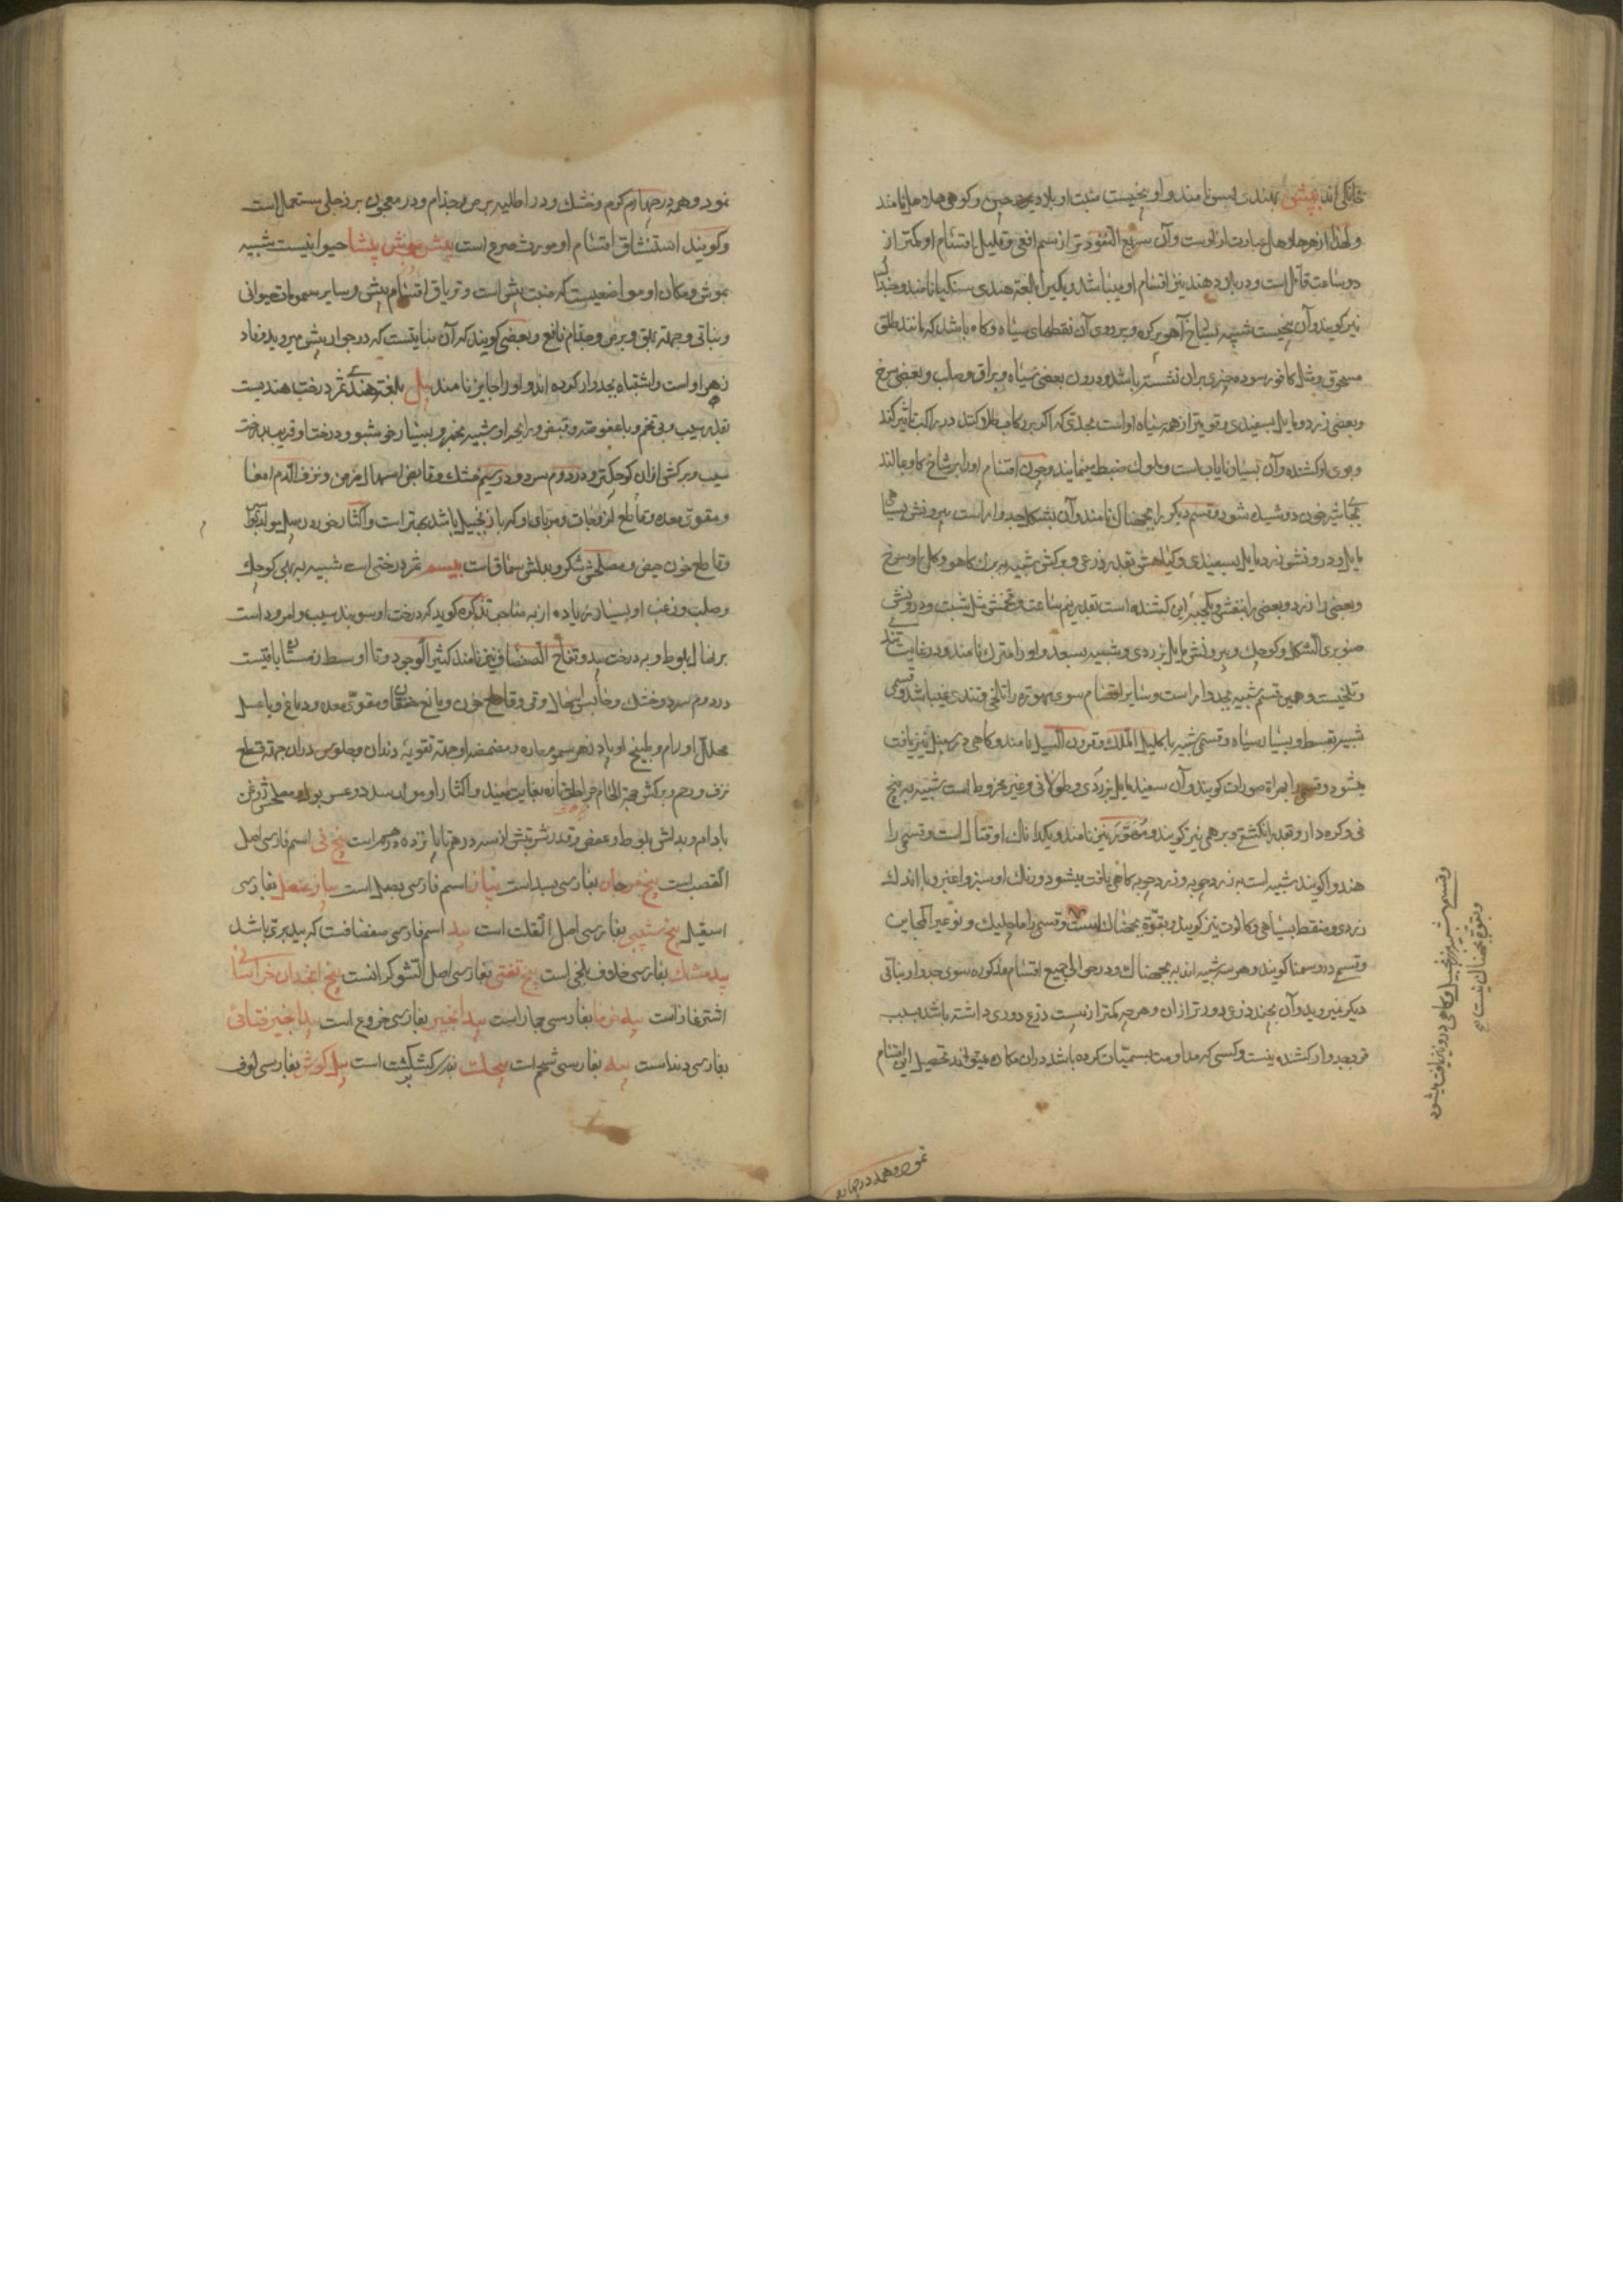 خانکی اند بیش بهندی بس نامند و او بیخیست منبت او بلاد چین و کوهی هلاهل نامند
و لهذا از زهر هلاهل عبارت از اوست و آن سریع النفوذ تر از سم افعی و قلیل اقسام او کمتر از
دو ساعت قاتل است و در بلاد هند بیش اقسام او میباشد و یکی را بلغة هندی سنکیا نامند
نیز کویند و آن بیخیست شبیه بشاخ آهو بره و بر روی آن نقطهای سیاه و کاه باشد که مانند طلق
مسحوق و مثل کافور سوده چیزی بران نشسته باشد و درون بعضی سیاه و براق و صلب و بعضی سرخ
و بعضی زرد و مایل بسفیدی و قویتر از همه سیاه او است بحدی که اکر بر رکاب طلا کنند در راکب تاثیر کند
و بوی او کشنده و آن بسیار نایاب است و ملوک ضبط مینمایند و چون اقسام او را بر شاخ کاو بمالند
بجای شیر خون دوشیده شود و قسم دیکر را نامند و آن بشکل جدوار است بیرونش بسیاهی
مایل و درونش زرد مایل بسفیدی و کیاهش بقدر ذرعی و برکش شبیه ببرك کاهو و کل او سرخ
و بعضی را زرد و بعضی را بنفش و یکحبه این کشنده است بقدر نیم ساعت و تخمش مثل شبت و درویش
صنوبری الشکل و کوچك و بیرونش مایل بزردی و شبیه بسعد و او را نامند و در غایت تندی
و تلخیست و همین قسم شبیه بجدوار است و سایر اقسام سوی را تلخی و تندی نمیباشد و قسمی
شبیه بقسط و بسیار سیاه و قسمی شبیه باکلیل الملك و قرون السنبل نامند و کاهی در سنبل نیز یافت
میشود و قسمی را کویند و آن سفید مایل بزردی و طولانی و غیر مخروط است شبیه به بیخ
نی و کره دار و بقدر انکشتی و برهمی نیز کویند و نیز نامند و یکدانك او قتال است و قسمی را
هندوا کویند شبیه است به زرد چوبه و در زرد چوبه کاهی یافت میشود و رنك او سبز و اغبر و با اندك
زردی و منقط بسیاهی و کالکوت نیز کویند و بقوة است و قسمی را
و قسم در کویند و هر سه شبیه اند به و در حوالی جمیع اقسام مذکوره سوی جدوار نباتی
دیکر نمیروید و آن بچند ذرع دورتر از آن و هر چه کمتر از بیست ذرع دوری داشته باشد بسبب
قرب جدوار کشنده نیست و کسی که مداومت بسمیات کرده باشد دران مکان میتواند تحصیل این اقسام
و قسمی شبیه بزنجبیل و کاهی درو نیز یافت میشود
و بقوة نیست
نمود و همه در چهارم
نمود و همه در چهارم کرم و خشك و در اطلیه برص و جذام و در معجون بزرجلی مستعمل است
و کویند استنشاق اقسام او مورث صرع است بیش موش بیشا حیوانیست شبیه
بموش و مکان او مواضعیست که منبت بیش است و تریاق اقسام بیش و سایر سمومات حیوانی
و نباتی و جهة بهق و برص و جذام نافع و بعضی کویند که آن نباتیست که در جوار بیش میروید و فاد
زهر او است و اشتباه بجدوار کرده اند و او را جایز نامند بل بلغة هندی ثمر درخت هندیست
بقدر سیب و بی تخم و با عفوصة و قبض و رایحه او شبیه بخمر و بسیار خوشبو و درخت او قریب بدرخت
سیب و برکش ازان کوچکتر و در دوم سرد و در سیم خشك و قابض اسهال مزمن و نزف الدم امعا
و مقوی معده و قاطع لزوجات و مربای او که با زنجبیل باشد بهتر است و اکثار خوردن بل مولد بواسیر
و قاطع خون حیض و مصلحش شکر و بدلش سماق است بیسم ثمر درختی است شبیه به بهی کوچك
و صلب و زغب او بسیار زیاده از به صاحب تذکره کوید که درخت او سوبند سیب و امرود است
برنهال بلوط و به درخت بید و تفاح الصفصاف نیز نامند کثیر الوجود و تا اوسط زمستان باقیست
در دوم سرد و خشك و حابس اسهال و قی و قاطع خون و مانع خفقان و مقوی معده و دماغ و با عسل
محلل اورام و طبیخ او پادزهر سموم حاره و مضمضه او جهة تقویة دندان و جلوس دران جهة قطع
نزف رحم و برکش جهة التحام جراحات تازه بغایت مفید و اکثار او مولد سدد و عسر بول و مصلحش روغن
بادام و بدلش بلوط و عفص و قدر شربتش از سه درهم تا پانزده درهم است بیخ نی اسم فارسی اصل
القصب است بیخ مرجان بفارسی بسد است پیاز اسم فارسی بصل است پیاز عنصل بفارسی
اسقیل بیخ بفارسی اصل است بید اسم فارسی صفصافست که بید بری باشد
بید مشك بفارسی خلاف بلخی است بیخ تفتی بفارسی اصل الشوکرانست بیخ انجدان خراسانی
اشترغاز است بید بفارسی است بید انجیر بفارسی خروع است بید انجیر ختائی
بفارسی دند است پیه بفارسی شحم است است پیل کوش بفارسی لوف